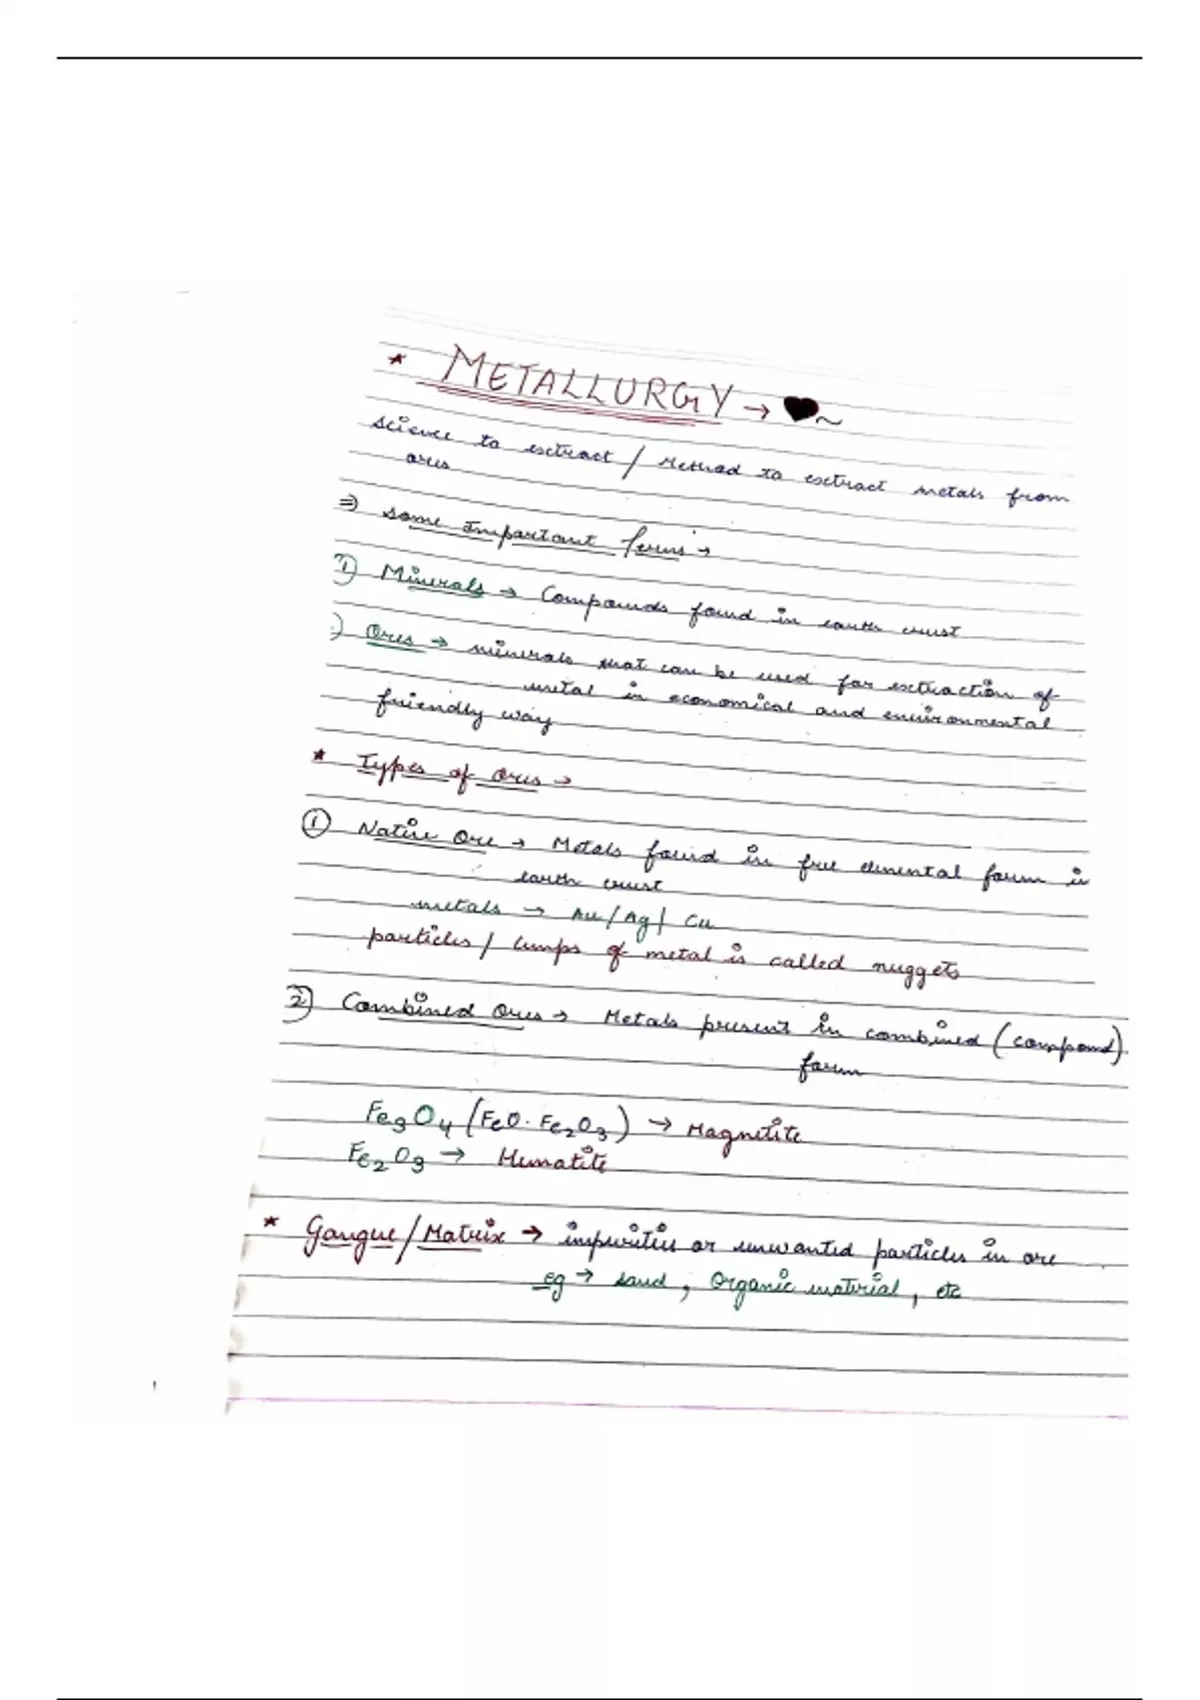 * METALLURGY → ♥~
science to extract / Method to extract metals from
ores
⇒ some Important Terms →
1) Minerals → Compounds found in earth crust
) Ores → minerals that can be used for extraction of
metal in economical and environmental
friendly way
* Types of Ores →
① Native Ore → Metals found in free elemental form in
earth crust
metals → Au/Ag/Cu
particles / lumps of metal is called nuggets
2) Combined Ores → Metals present in combined (compond)
form
Fe3O4 (FeO. Fe2O3) → Magnetite
Fe2O3 → Hematite
* Gangue/Matrix → impurities or unwanted particles in ore
eg → sand, Organic material, etc